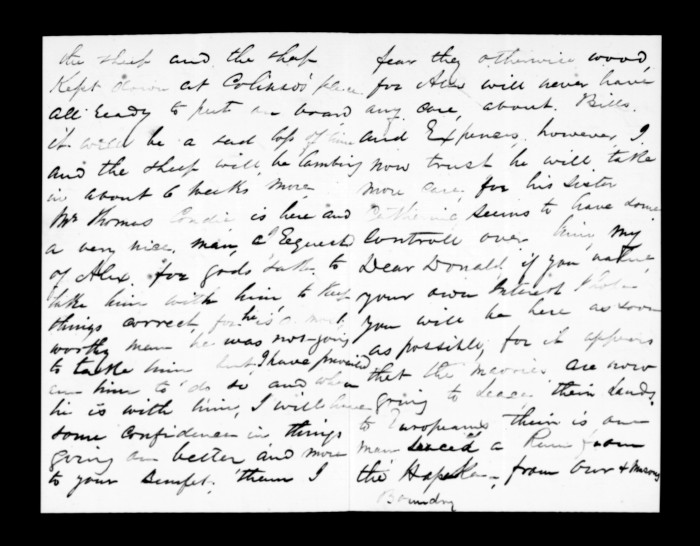 the sheep and the shep
Kept down at Colinso's place
all ready to put on board
it will be a sad loss of time
and the sheep will be lambing
in about 6 weeks more
Mr Thomas is here and
a very nice man, I Requested
of Alex for gods sake to
take him with him to keep
things correct for he is a most
worthy man he was not going
to take him but I have prevailed
on him to do so and when
he is with him, I will have
some confidence in things
going on better and more
to your Benifet, than I
fear they otherwise wood,
for Alex will never have
any care, about Bills
and Expences, however, I
now trust he will take
more care, for his sister
Catherine seems to have some
controll over him, my
Dear Donald if you value
your own Interest I hope
you will be here as soon
as possibly, for it appears
that the maories are now
going to Leace their Lands
to Europeans their is one
man Leaced a Run from
the from Our &
Boundry